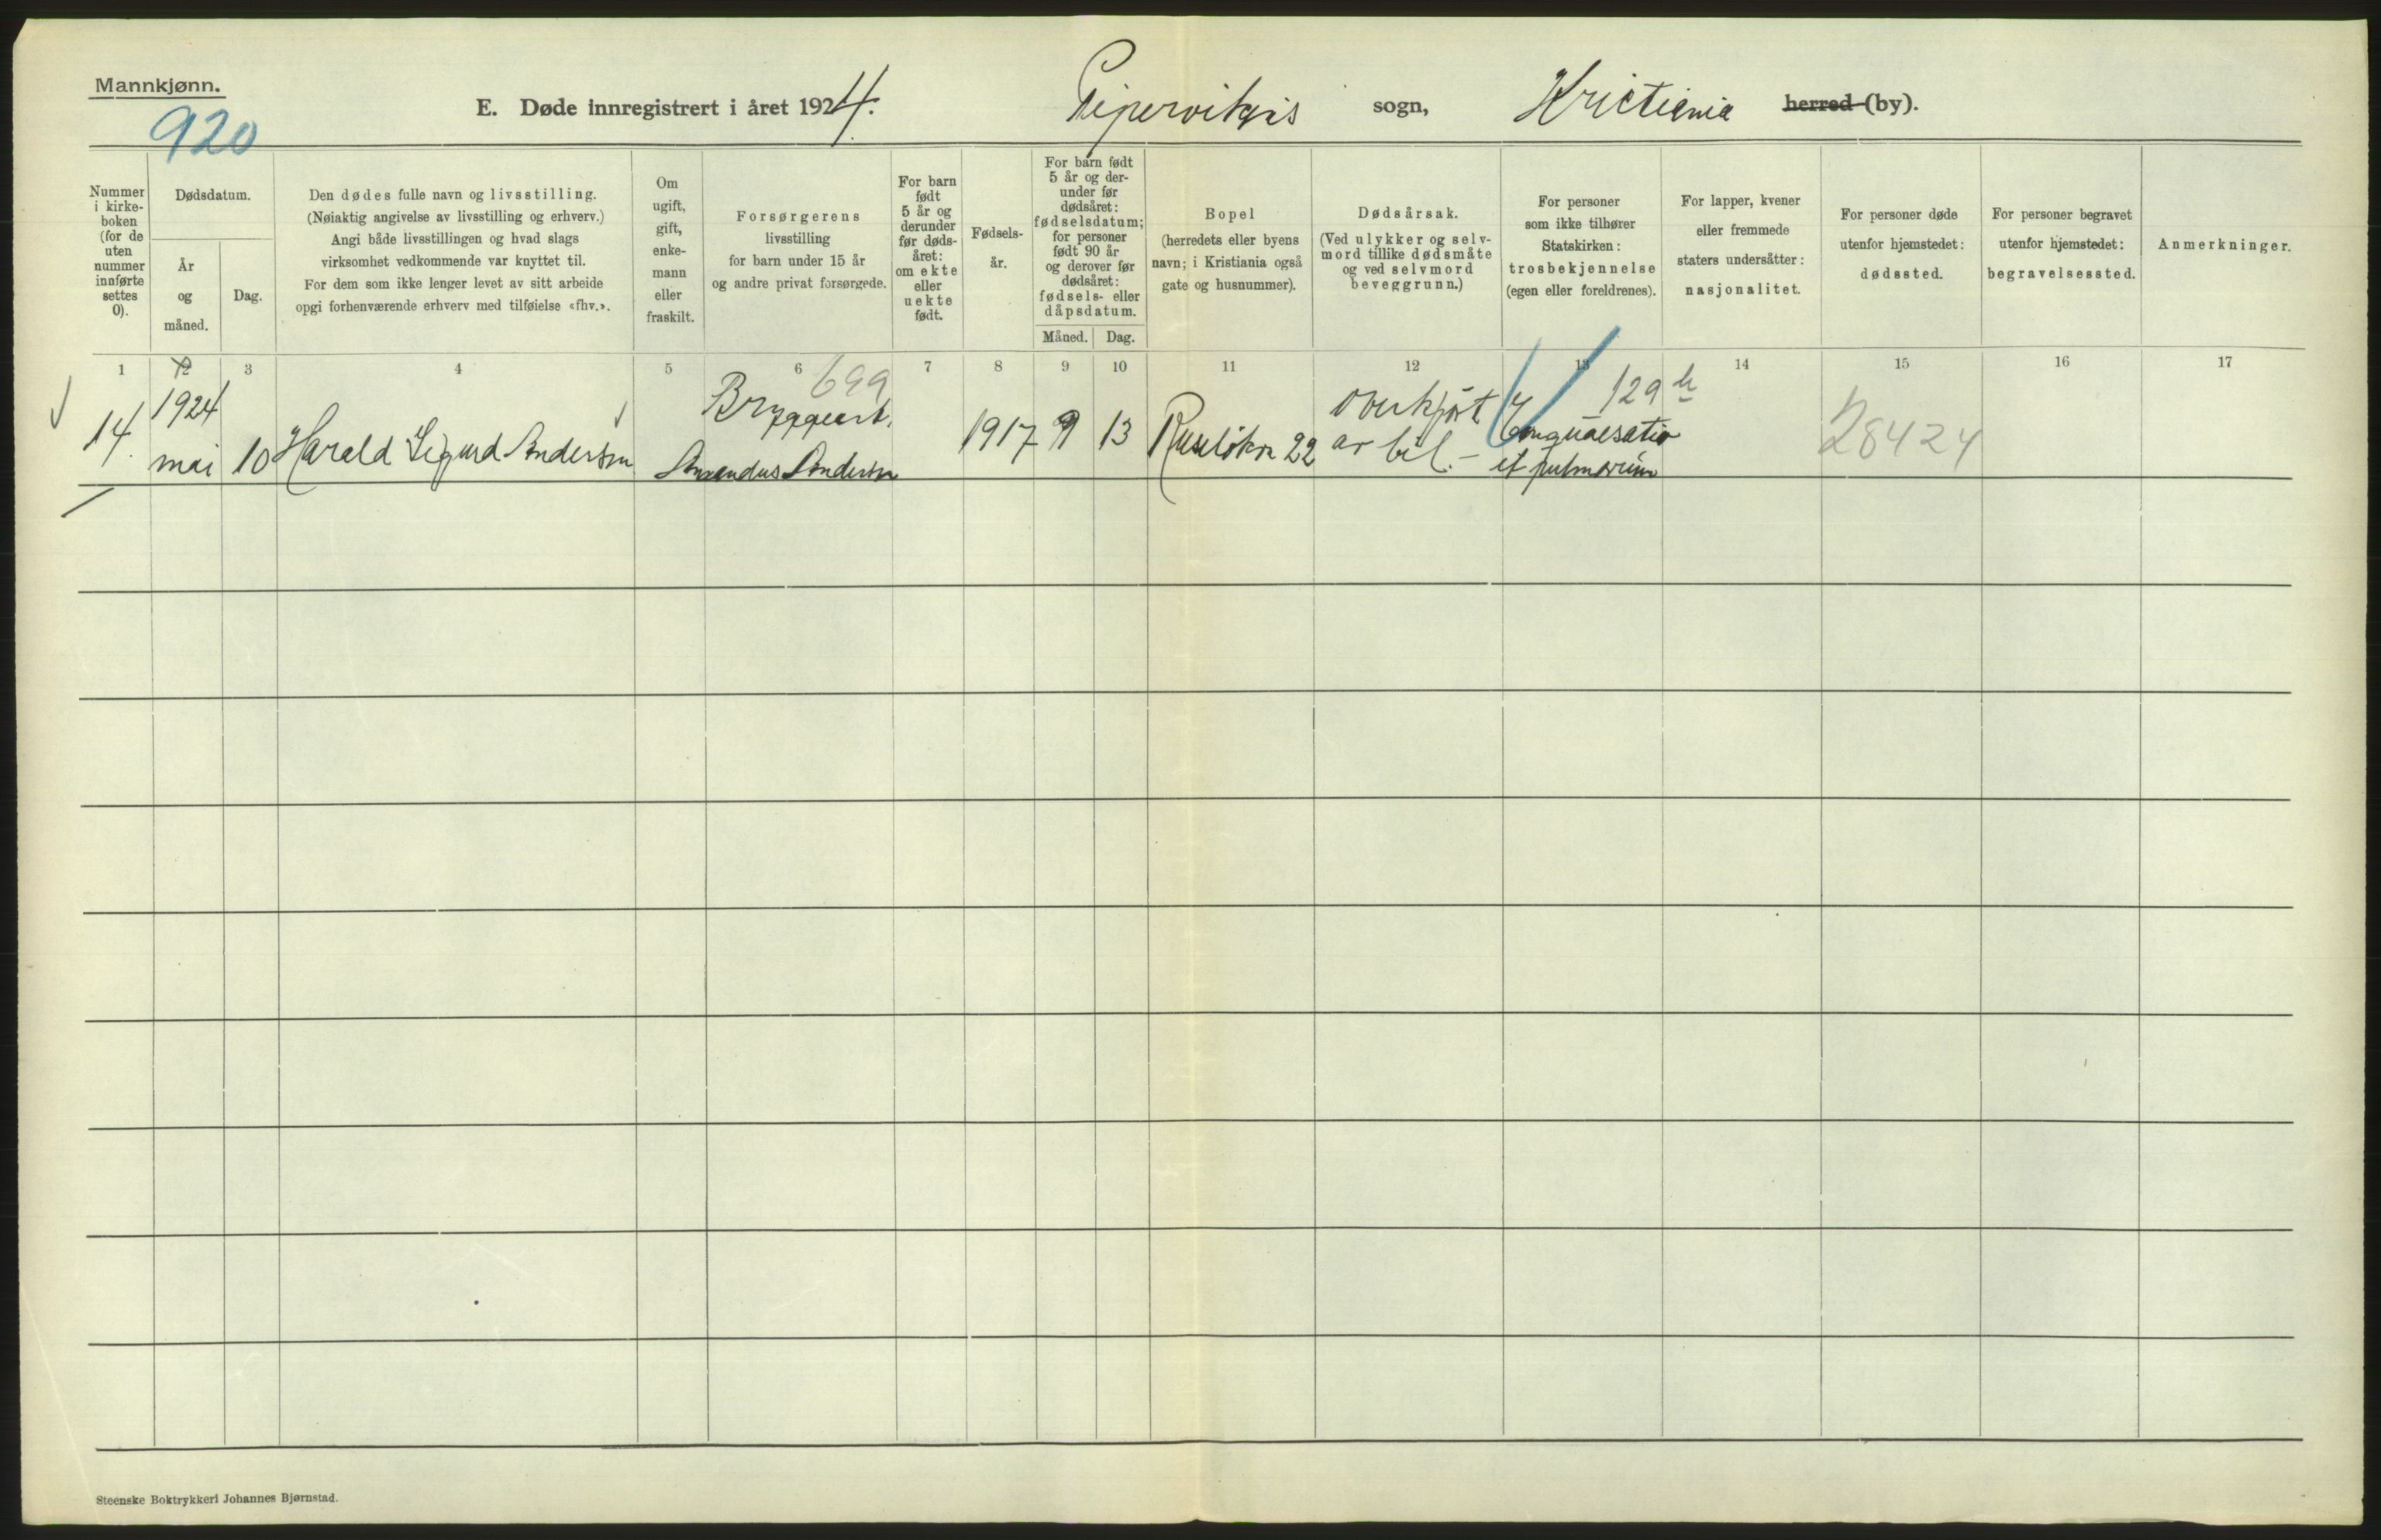 Mannkjønn.
920
E. Døde innregistrert i året 1924. Pipervikens sogn, Kristiania herred (by).
Nummer i kirke-boken (for de uten nummer innførte settes 0).
Dødsdatum.
År og måned.
Dag.
Den dødes fulle navn og livsstilling.
(Nøiaktig angivelse av livsstilling og erhverv.)
Angi både livsstillingen og hvad slags
virksomhet vedkommende var knyttet til.
For dem som ikke lenger levet av sitt arbeide
opgi forhenværende erhverv med tilføielse «fhv.».
Om ugift, gift, enke-mann eller fraskilt.
Forsørgerens
livsstilling
for barn under 15 år
og andre privat forsørgede.
For barn født 5 år og derunder før døds-året: om ekte eller uekte født.
Fødsels-år.
For barn født 5 år og der-under før dødsåret: fødselsdatum; for personer født 90 år og derover før dødsåret: fødsels- eller dåpsdatum.
Måned.
Dag.
Bopel
(herredets eller byens
navn; i Kristiania også
gate og husnummer).
Dødsårsak.
(Ved ulykker og selv-
mord tillike dødsmåte
og ved selvmord
beveggrunn.)
For personer
som ikke tilhører
Statskirken:
trosbekjennelse
(egen eller foreldrenes).
For lapper, kvener
eller fremmede
staters undersåtter:
nasjonalitet.
For personer døde
utenfor hjemstedet:
dødssted.
For personer begravet
utenfor hjemstedet:
begravelsessted.
Anmerkninger.
1 2 3 4 5 6 7 8 9 10 11 12 13 14 15 16 17
14.
1924
mai
10
Harald Sigurd Andersen
699
Bryggearb.
Amandus Andersen
1917
9
13
Ruseløkn 22
overkjørt
av bil. –
129
Conquaesatio
et pulmorum
28424
Steenske Boktrykkeri Johannes Bjørnstad.